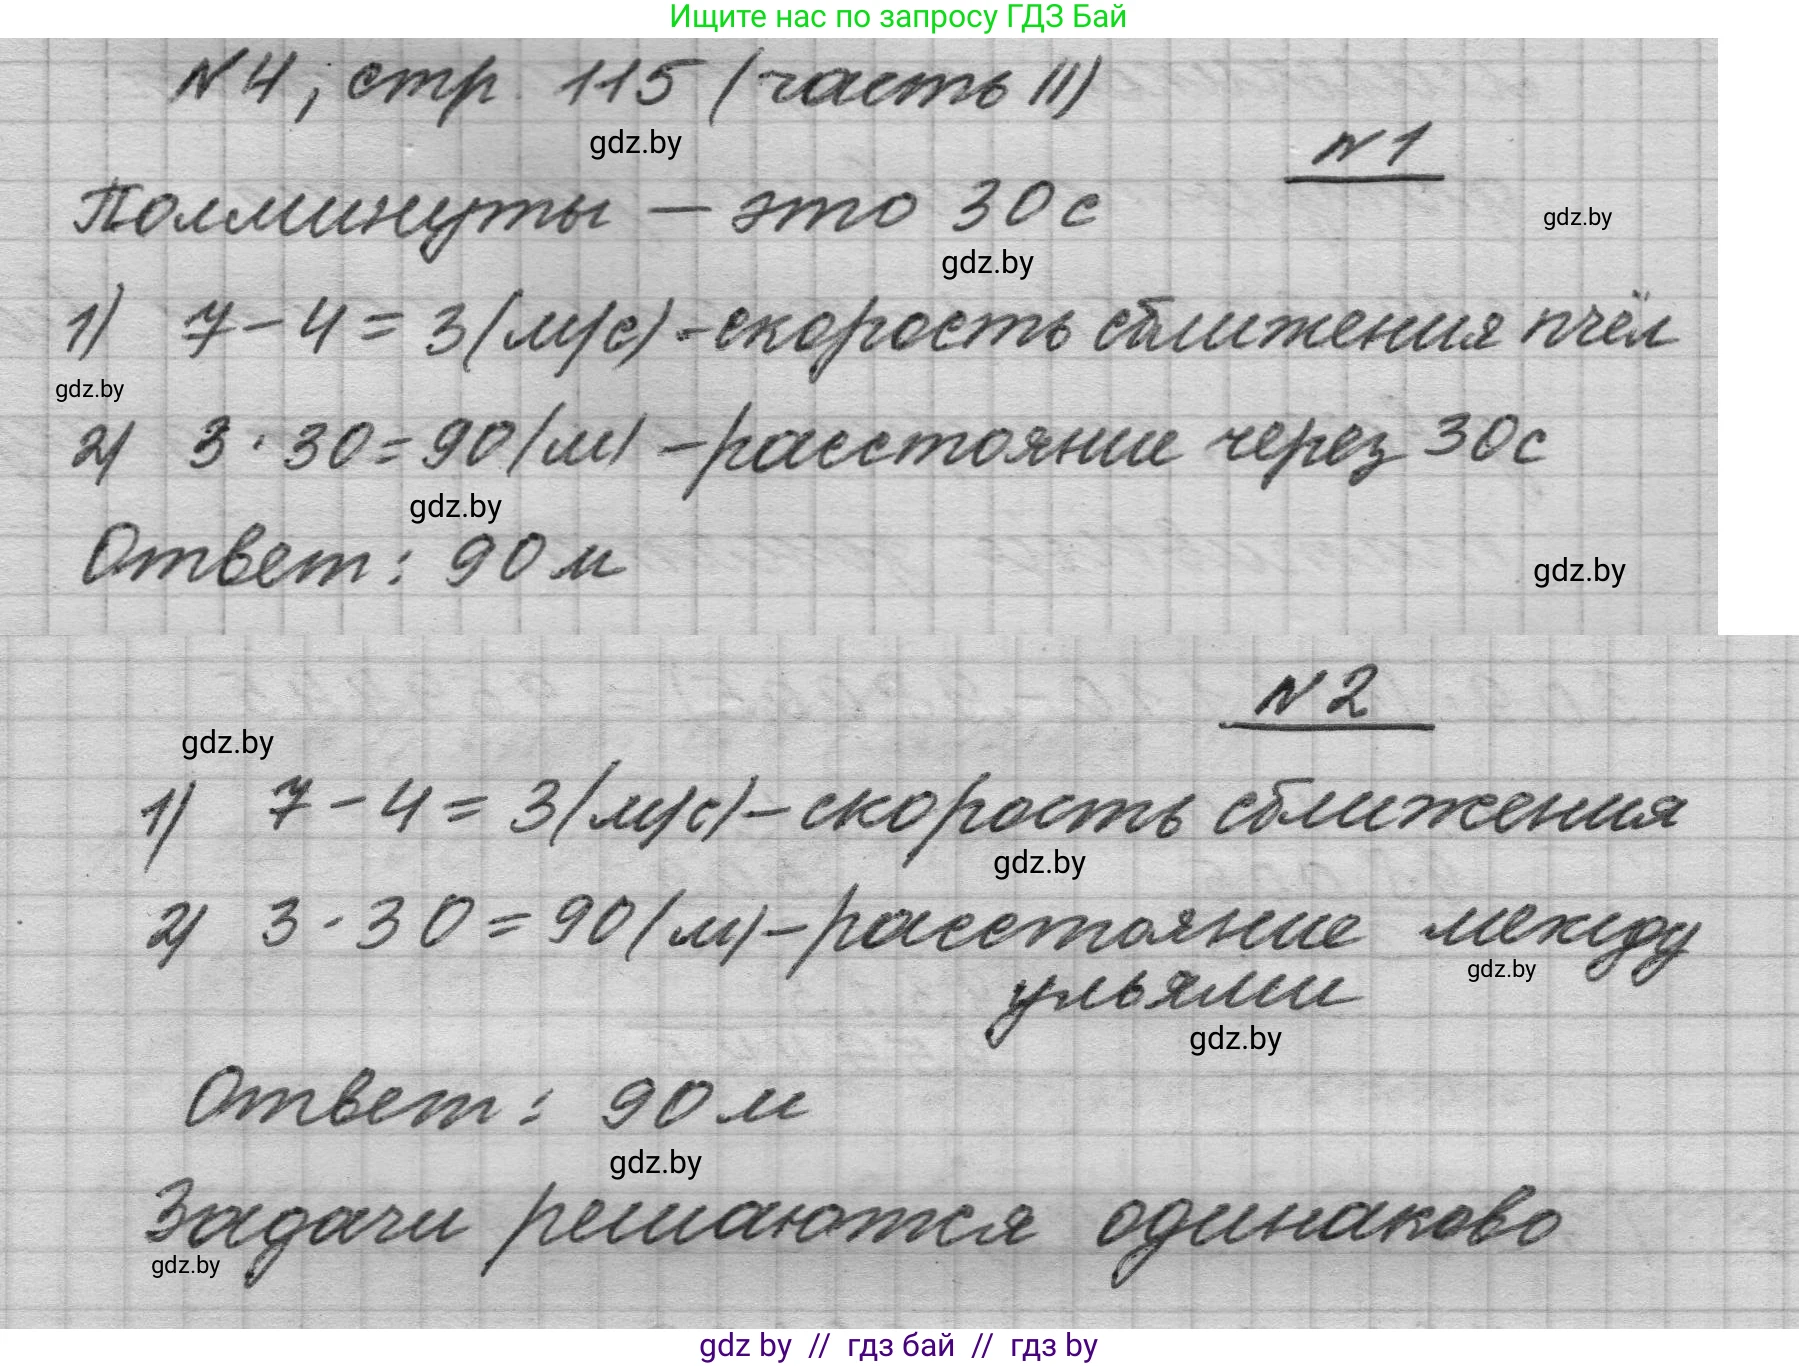 Ищите нас по запросу ГДЗ Бай
№4, стр. 115 (часть II)
gdz.by
№1
Полминуты – это 30 с
gdz.by
gdz.by
1) 7 – 4 = 3 (м/с) – скорость сближения пчёл
gdz.by
2) 3 · 30 = 90 (м) – расстояние через 30 с
gdz.by
Ответ: 90 м
gdz.by
№2
gdz.by
1) 7 – 4 = 3 (м/с) – скорость сближения
gdz.by
2) 3 · 30 = 90 (м) – расстояние между
gdz.by
ульями
gdz.by
Ответ: 90 м
gdz.by
Задачи решаются одинаково
gdz.by
gdz by // гдз бай // гдз by